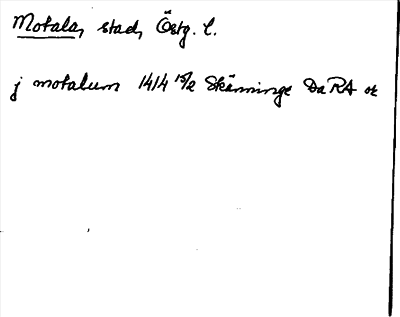 Motala, stad, Östg. l.
j motalum 1414 15/2 Skänninge DaRA or